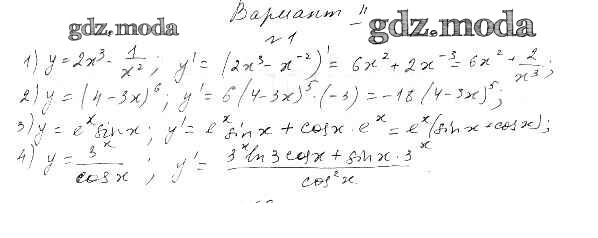 Вариант - II
gdz.moda
gdz.moda
№1
1) y = 2x³ - 1/x²; y' = (2x³ - x⁻²)' = 6x² + 2x⁻³ = 6x² + 2/x³;
2) y = (4-3x)⁶; y' = 6(4-3x)⁵·(-3) = -18(4-3x)⁵;
3) y = eˣ sin x; y' = eˣ sin x + cos x · eˣ = eˣ(sin x + cos x);
4) y = 3ˣ/cos x; y' = (3ˣ ln 3 cos x + sin x · 3ˣ)/cos² x